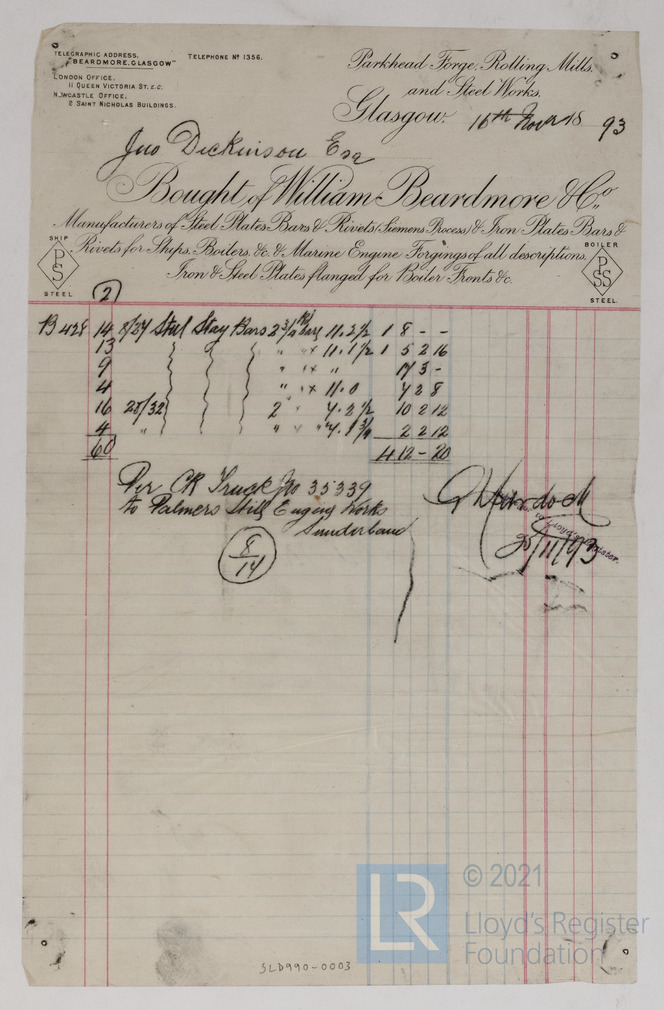 TELEGRAPHIC ADDRESS,
"BEARDMORE, GLASGOW"
TELEPHONE Nº 1356.
LONDON OFFICE,
11 QUEEN VICTORIA ST. E.C.
NEWCASTLE OFFICE,
2 SAINT NICHOLAS BUILDINGS.
Parkhead Forge, Rolling Mills,
and Steel Works,
Glasgow, 16th Novr 18 93
Jno Dickinson Esq
Bought of William Beardmore & Co.,
Manufacturers of Steel Plates Bars & Rivets (Siemens Process) & Iron Plates Bars &
Rivets for Ships, Boilers, &c. & Marine Engine Forgings of all descriptions.
Iron & Steel Plates flanged for Boiler Fronts &c.
SHIP PSS STEEL
BOILER PSS STEEL
2
B 428 14 8/27 Steel Stay Bars 2 3/4 11.2 1/2 1 8 - -
13 " x 11.1 1/2 1 5 2 16
9 " x " 17 3 -
4 " x 11.0 7 2 8
16 28/32 2 " 7.2 1/2 10 2 12
4 " " " 7.1 3/4 2 2 12
60 4 12 - 20
Per CR Truck No 35339
to Palmers Still Engine Works
Sunderland
8/14
Murdoch
to Lloyd's Register.
25/11/93
SLD990-0003
LR
© 2021
Lloyd's Register
Foundation